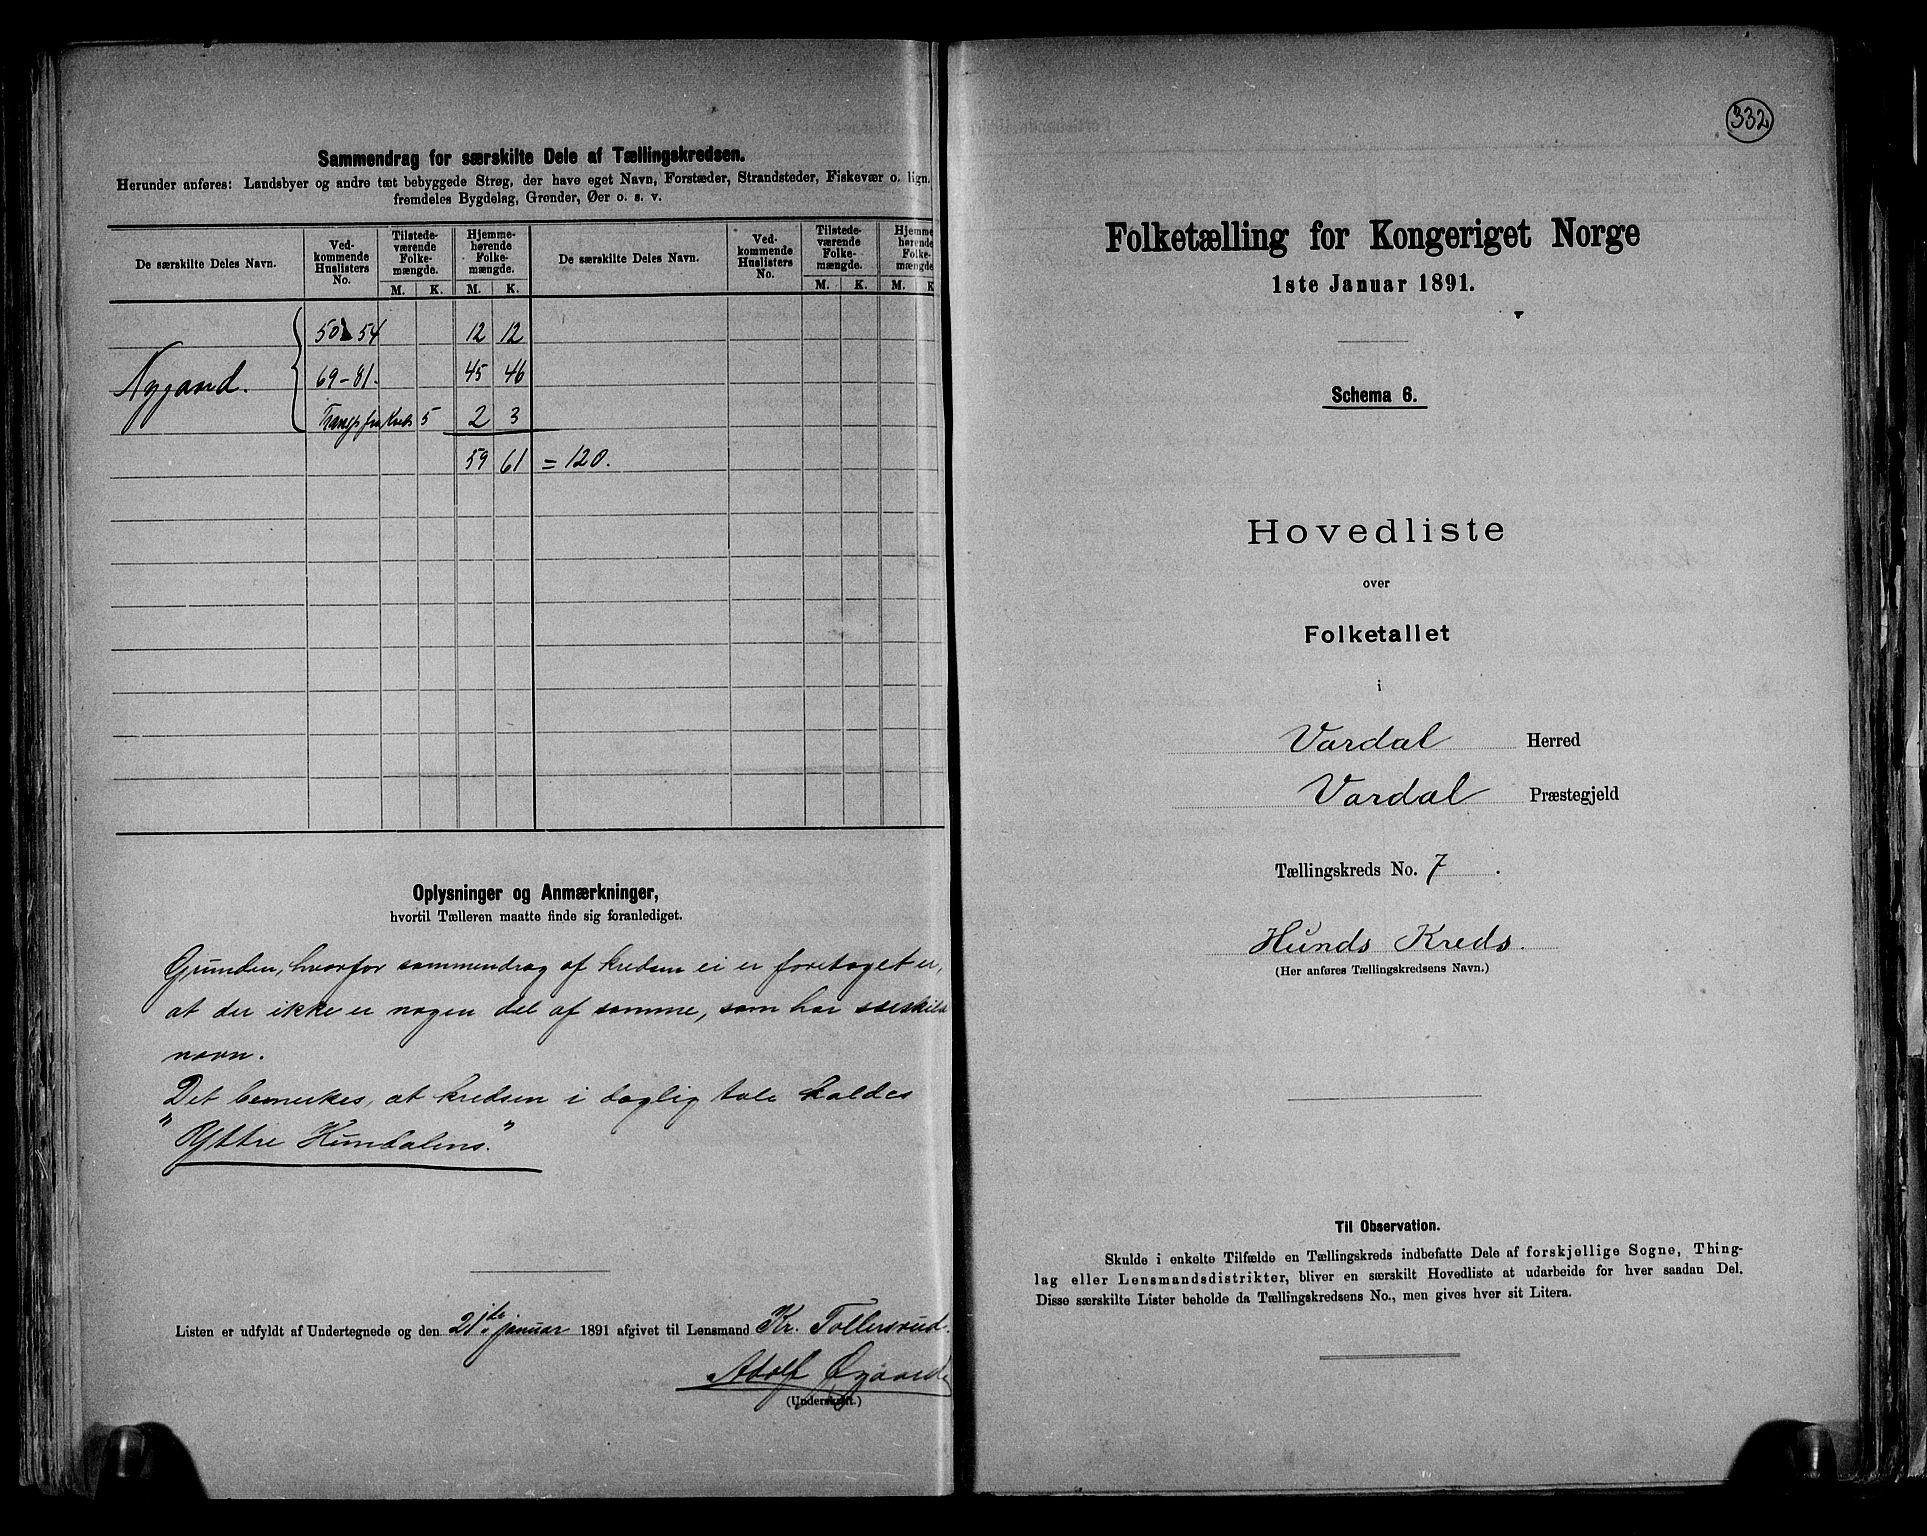 Sammendrag for særskilte Dele af Tællingskredsen.
Herunder anføres: Landsbyer og andre tæt bebyggede Strøg, der have eget Navn, Forstæder, Strandsteder, Fiskevær o. lign.
fremdeles Bygdelag, Grender, Øer o. s. v.
De særskilte Deles Navn. Ved-kommende Huslisters No. Tilstede-værende Folke-mængde. Hjemme-hørende Folke-mængde. De særskilte Deles Navn. Ved-kommende Huslisters No. Tilstede-værende Folke-mængde. Hjemme-hørende Folke-mængde.
M. K. M. K. M. K. M. K.
50 54 12 12
Nygaard. 69-81. 45 46
fra Kreds 5 2 3
59 61 = 120.
Oplysninger og Anmærkninger,
hvortil Tælleren maatte finde sig foranlediget.
Grunden, hvorfor sammendrag af kredsen ei er foretaget er,
at der ikke er nogen del af samme, som har særskild
navn.
Det bemerkes, at kredsen i daglig tale kaldes
"Yttre Hundalens."
Listen er udfyldt af Undertegnede og den 21de januar 1891 afgivet til Lensmand Kr. Tollersrud.
Adolf Øgaard
(Underskrift.)
332
Folketælling for Kongeriget Norge
1ste Januar 1891.
Schema 6.
Hovedliste
over
Folketallet
i
Vardal Herred
Vardal Præstegjeld
Tællingskreds No. 7.
Hunds Kreds.
(Her anføres Tællingskredsens Navn.)
Til Observation.
Skulde i enkelte Tilfælde en Tællingskreds indbefatte Dele af forskjellige Sogne, Thing-
lag eller Lensmandsdistrikter, bliver en særskilt Hovedliste at udarbeide for hver saadan Del.
Disse særskilte Lister beholde da Tællingskredsens No., men gives hver sit Litera.